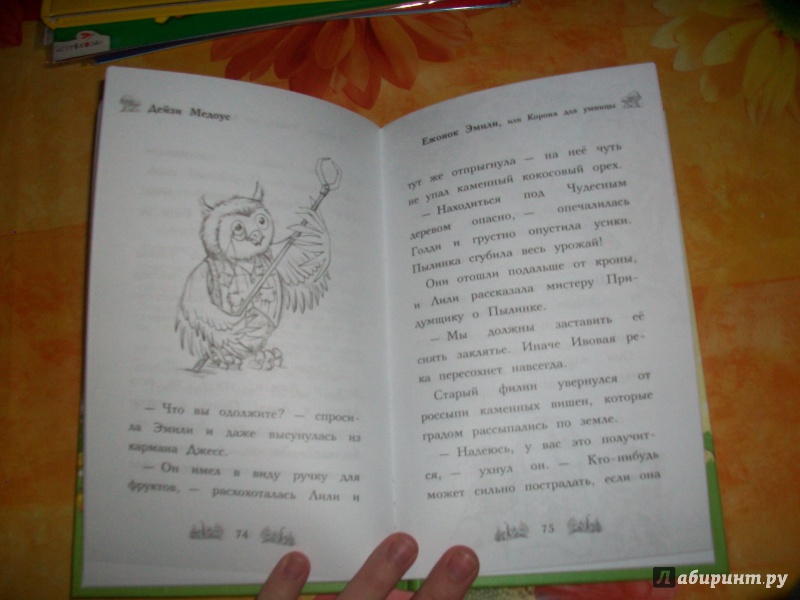 СТРЕКОЗА
Дейзи Медоус
— Что вы одолжите? — спроси-
ла Эмили и даже высунулась из
кармана Джесс.
— Он имел в виду ручку для
фруктов, — расхохоталась Лили и
74
Ежонок Эмили, или Корона для умницы
тут же отпрыгнула — на неё чуть
не упал каменный кокосовый орех.
— Находиться под Чудесным
деревом опасно, — опечалилась
Голди и грустно опустила усики.
Пылинка сгубила весь урожай!
Они отошли подальше от кроны,
и Лили рассказала мистеру При-
думщику о Пылинке.
— Мы должны заставить её
снять заклятье. Иначе Ивовая ре-
ка пересохнет навсегда.
Старый филин увернулся от
россыпи каменных вишен, которые
градом рассыпались по земле.
— Надеюсь, у вас это получит-
ся, — ухнул он. — Кто-нибудь
может сильно пострадать, если она
75
Лабиринт.ру